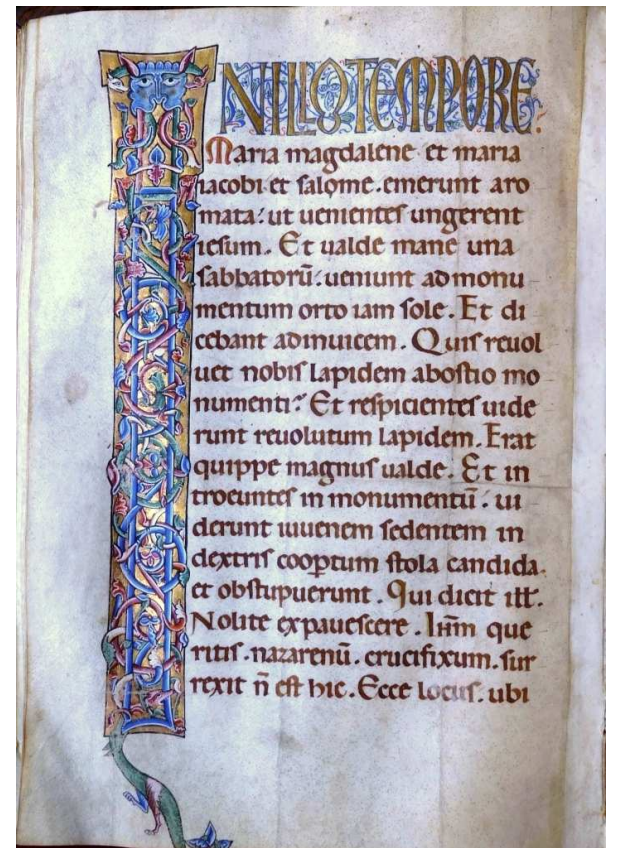 IN ILLO TEMPORE.
Maria magdalene et maria
iacobi et salome. emerunt aro
mata: ut uenientes ungerent
iesum. Et ualde mane una
sabbatorū. ueniunt ad monu
mentum orto iam sole. Et di
cebant adinuicem. Quis reuol
uet nobis lapidem abostio mo
numenti? Et respicientes uide
runt reuolutum lapidem. Erat
quippe magnus ualde. Et in
troeuntes in monumentū. ui
derunt iuuenem sedentem in
dextris coopertum stola candida.
et obstupuerunt. Qui dicit ill̄.
Nolite expauescere. Ihm̄ que
ritis. nazarenū. crucifixum. sur
rexit n̄ est hic. Ecce locus. ubi